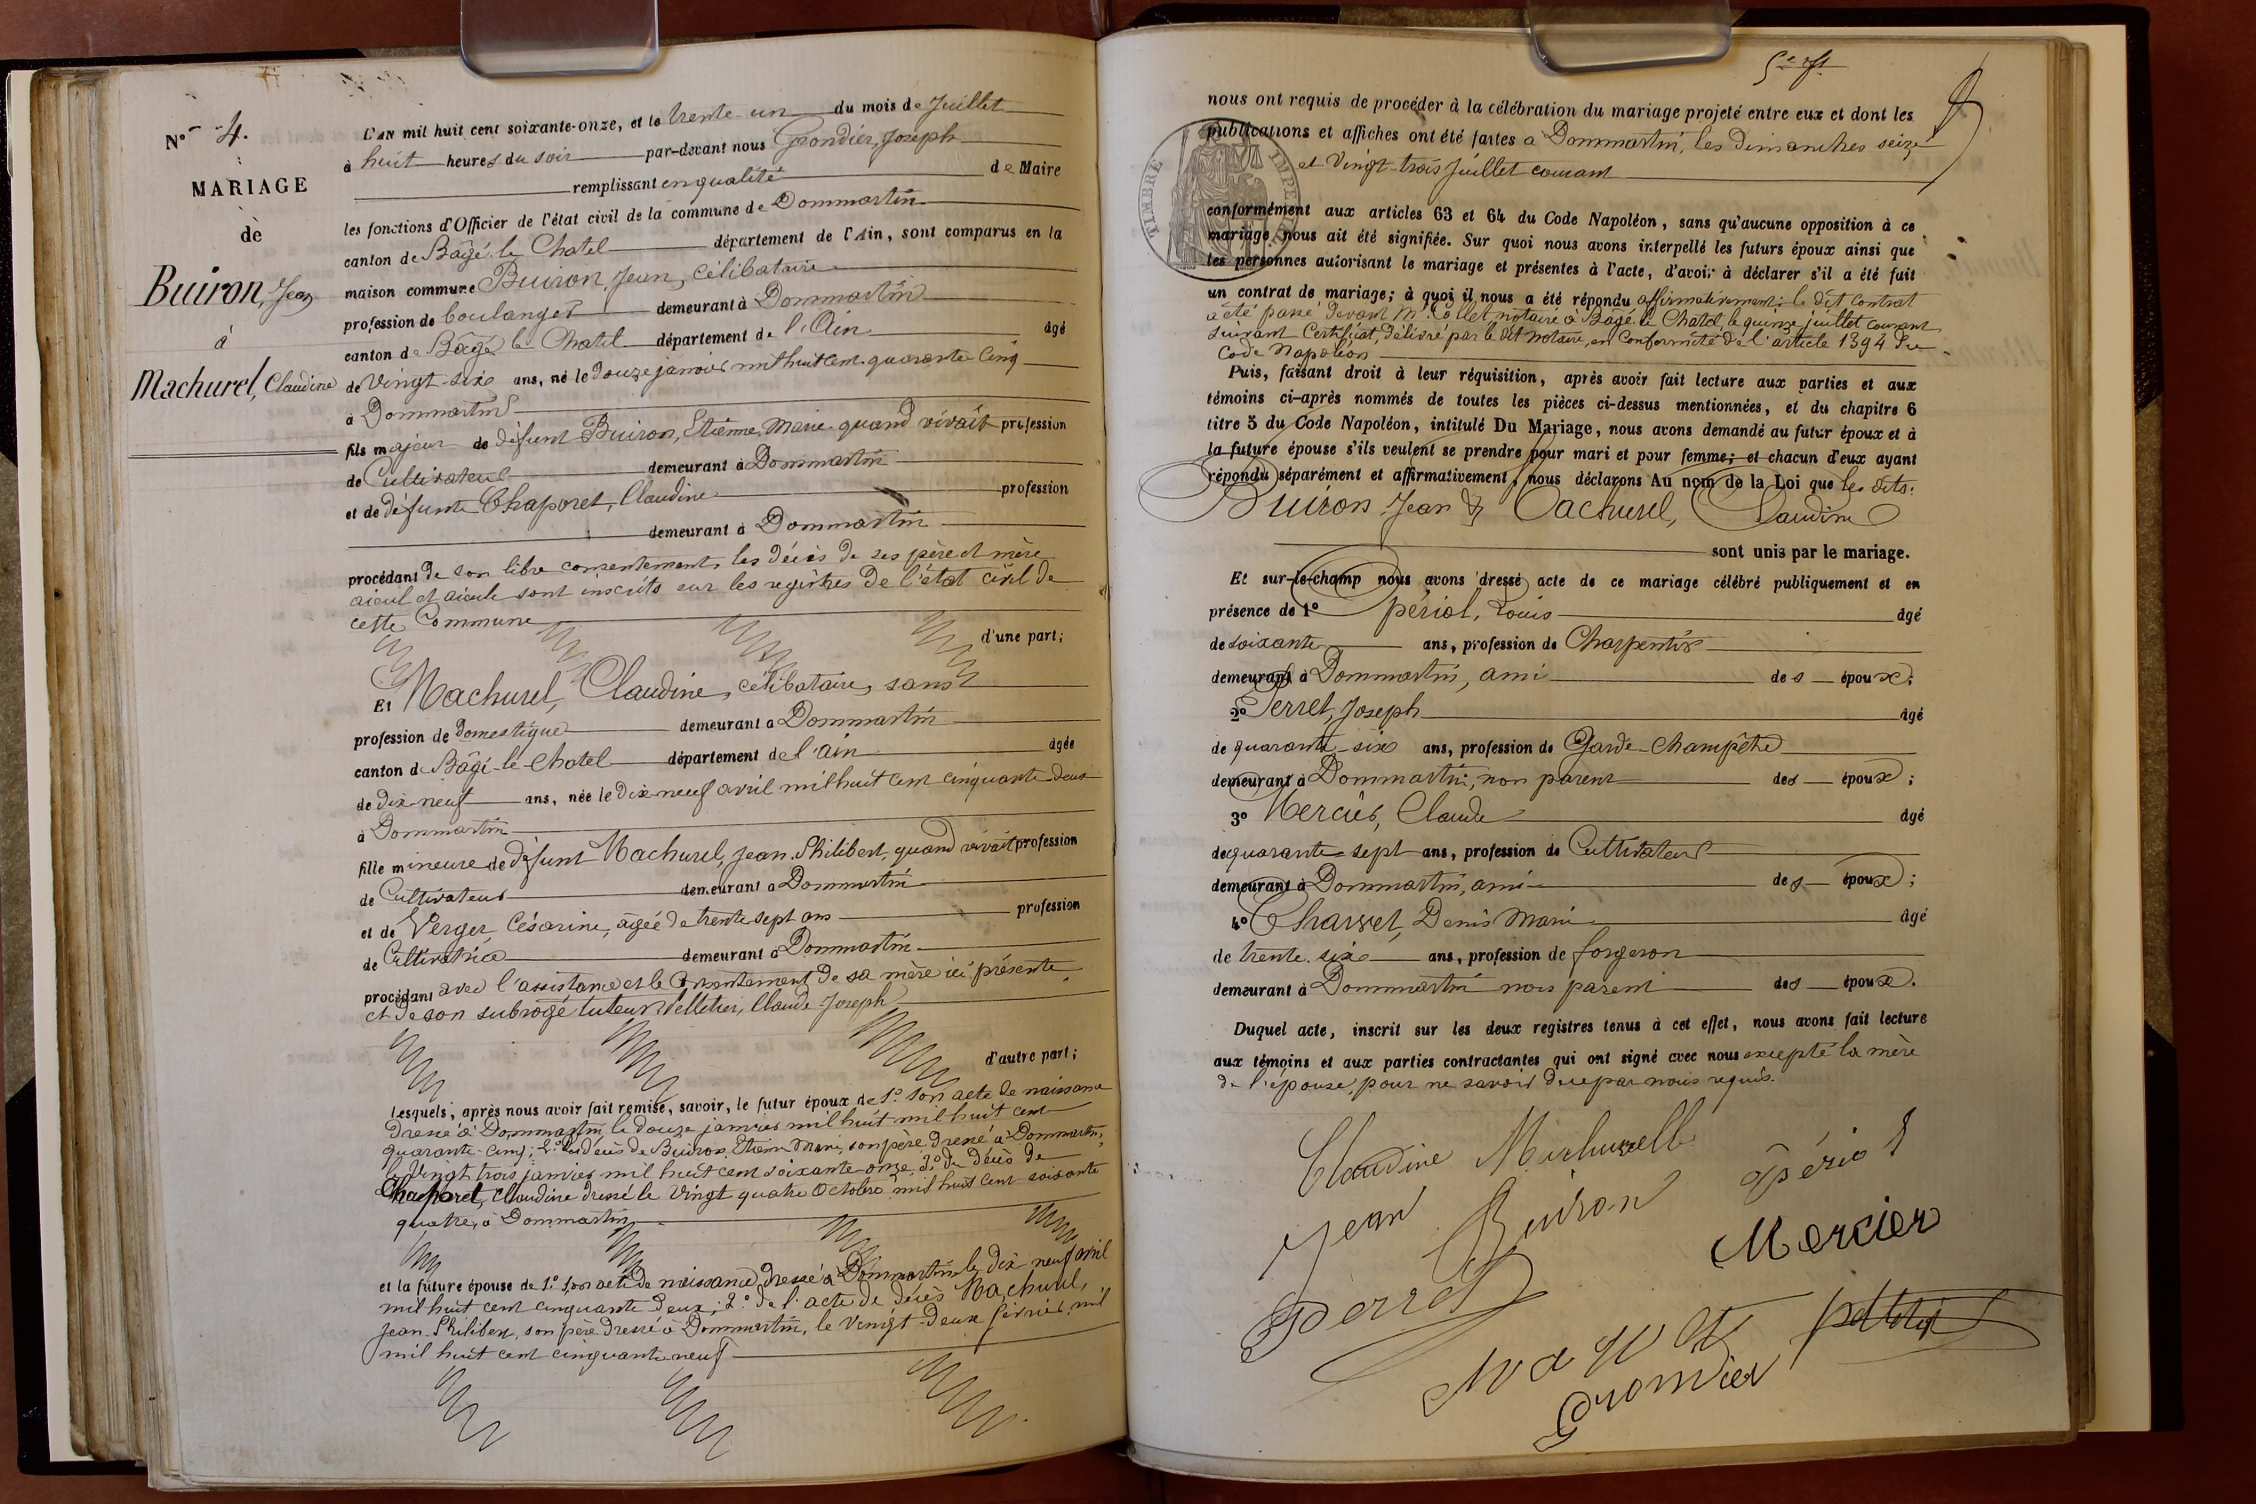 N° 4.
MARIAGE
de
Buiron, Jean
à
Machurel, Claudine
L'AN mil huit cent soixante-onze, et le trente-un du mois de Juillet
à huit heures du soir par-devant nous Joseph
remplissant en qualité de Maire
les fonctions d'Officier de l'état civil de la commune de Dommartin
canton de Bâgé-le-Chatel département de l'Ain, sont comparus en la
maison commune Buiron, Jean, célibataire
profession de boulanger demeurant à Dommartin
canton de Bâgé le Chatel département de l'Ain âgé
de vingt-six ans, né le douze janvier mil huit cent quarante cinq
à Dommartin
fils majeur de défunt Buiron, Etienne Marie quand vivait profession
de Cultivateur demeurant à Dommartin
et de défunte Chaporet, Claudine profession
demeurant à Dommartin
procédant de son libre consentement, les décès de ses père et mère
aieul et aieule sont inscrits sur les registres de l'état civil de
cette Commune
d'une part;
Et Machurel, Claudine, célibataire, sans
profession de domestique demeurant à Dommartin
canton de Bâgé-le-Chatel département de l'Ain âgée
de dix-neuf ans, née le dix-neuf avril mil huit cent cinquante-deux
à Dommartin
fille mineure de défunt Machurel, Jean-Philibert, quand vivait profession
de Cultivateur demeurant à Dommartin
et de Verger Césarine, âgée de trente sept ans profession
de Cultivatrice demeurant à Dommartin
procédant avec l'assistance et le Consentement de sa mère ici présente
et de son subrogé tuteur Pelletier, Claude Joseph
d'autre part;
Lesquels, après nous avoir fait remise, savoir, le futur époux de 1° son acte de naissance
dressé à Dommartin le douze janvier mil huit mil huit cent
quarante-cinq; 2° du décès de Buiron, Etienne Marie, son père dressé à Dommartin,
le vingt trois janvier mil huit cent soixante-onze, 3° du décès de
Chaporet, Claudine dressé le vingt quatre Octobre mil huit cent soixante
quatre, à Dommartin
et la future épouse de 1° son acte de naissance dressé à Dommartin le dix neuf avril
mil huit cent cinquante deux; 2° de l'acte de décès Machurel,
Jean-Philibert, son père dressé à Dommartin, le vingt-deux février mil
mil huit cent cinquante neuf
nous ont requis de procéder à la célébration du mariage projeté entre eux et dont les
publications et affiches ont été faites à Dommartin, les dimanches seize
et vingt-trois Juillet courant
TIMBRE IMPÉ
conformément aux articles 63 et 64 du Code Napoléon, sans qu'aucune opposition à ce
mariage nous ait été signifiée. Sur quoi nous avons interpellé les futurs époux ainsi que
les personnes autorisant le mariage et présentes à l'acte, d'avoir à déclarer s'il a été fait
un contrat de mariage; à quoi il nous a été répondu affirmativement; le dit contrat
a été passé devant Mr Collet notaire à Bâgé le Chatel, le quinze juillet courant
suivant Certificat, délivré par le dit notaire, en conformité de l'article 1394 du
Code Napoléon
Puis, faisant droit à leur réquisition, après avoir fait lecture aux parties et aux
témoins ci-après nommés de toutes les pièces ci-dessus mentionnées, et du chapitre 6
titre 5 du Code Napoléon, intitulé Du Mariage, nous avons demandé au futur époux et à
la future épouse s'ils veulent se prendre pour mari et pour femme; et chacun d'eux ayant
répondu séparément et affirmativement, nous déclarons Au nom de la Loi que les dits:
Buiron Jean & Machurel, Claudine
sont unis par le mariage.
Et sur-le-champ nous avons dressé acte de ce mariage célébré publiquement et en
présence de 1° Périol, Louis âgé
de soixante ans, profession de Charpentier
demeurant à Dommartin, ami des époux;
2° Perret, Joseph âgé
de quarante-six ans, profession de Garde-Champêtre
demeurant à Dommartin; non parent des époux;
3° Mercier, Claude âgé
de quarante-sept ans, profession de Cultivateur
demeurant à Dommartin, ami des époux;
4° Denis Marie âgé
de trente-six ans, profession de forgeron
demeurant à Dommartin non parent des époux.
Duquel acte, inscrit sur les deux registres tenus à cet effet, nous avons fait lecture
aux témoins et aux parties contractantes qui ont signé avec nous excepté la mère
de l'épouse, pour ne savoir de ce par nous requis.
Claudine Machurelle
Périol
Jean Buiron
Mercier
Perret